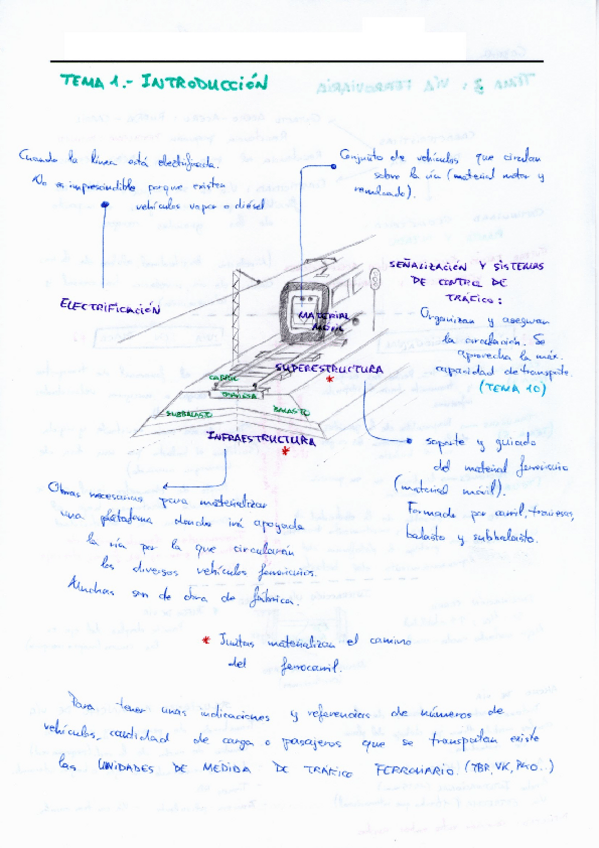 TEMA 1.- INTRODUCCIÓN
Cuando la línea está electrificada.
No es imprescindible porque existen
vehículos vapor o diésel
Conjunto de vehículos que circulan
sobre la vía (material motor y
remolcado).
ELECTRIFICACIÓN
MATERIAL
MÓVIL
SEÑALIZACIÓN Y SISTEMAS
DE CONTROL DE
TRÁFICO:
Organizan y aseguran
la circulación. Se
aprovecha la máx.
capacidad de transpote.
(TEMA 10)
SUPERESTRUCTURA
*
CARRIL
TRAVIESA
SUBBALASTO
BALASTO
INFRAESTRUCTURA
*
soporte y guiado
del material ferroviario
(material móvil).
Formada por carril, traviesas,
balasto y subbalasto.
Obras necesarias para materializar
una plataforma donde irá apoyada
la vía por la que circularán
los diversos vehículos ferroviarios.
Muchas son de obra de fábrica.
* Juntas materializan el camino
del ferrocarril.
Para tener unas indicaciones y referencias de números de
vehículos, cantidad de carga o pasajeros que se transportan existe
las UNIDADES DE MEDIDA DE TRÁFICO FERROVIARIO. (TBR, VK, PKO..)